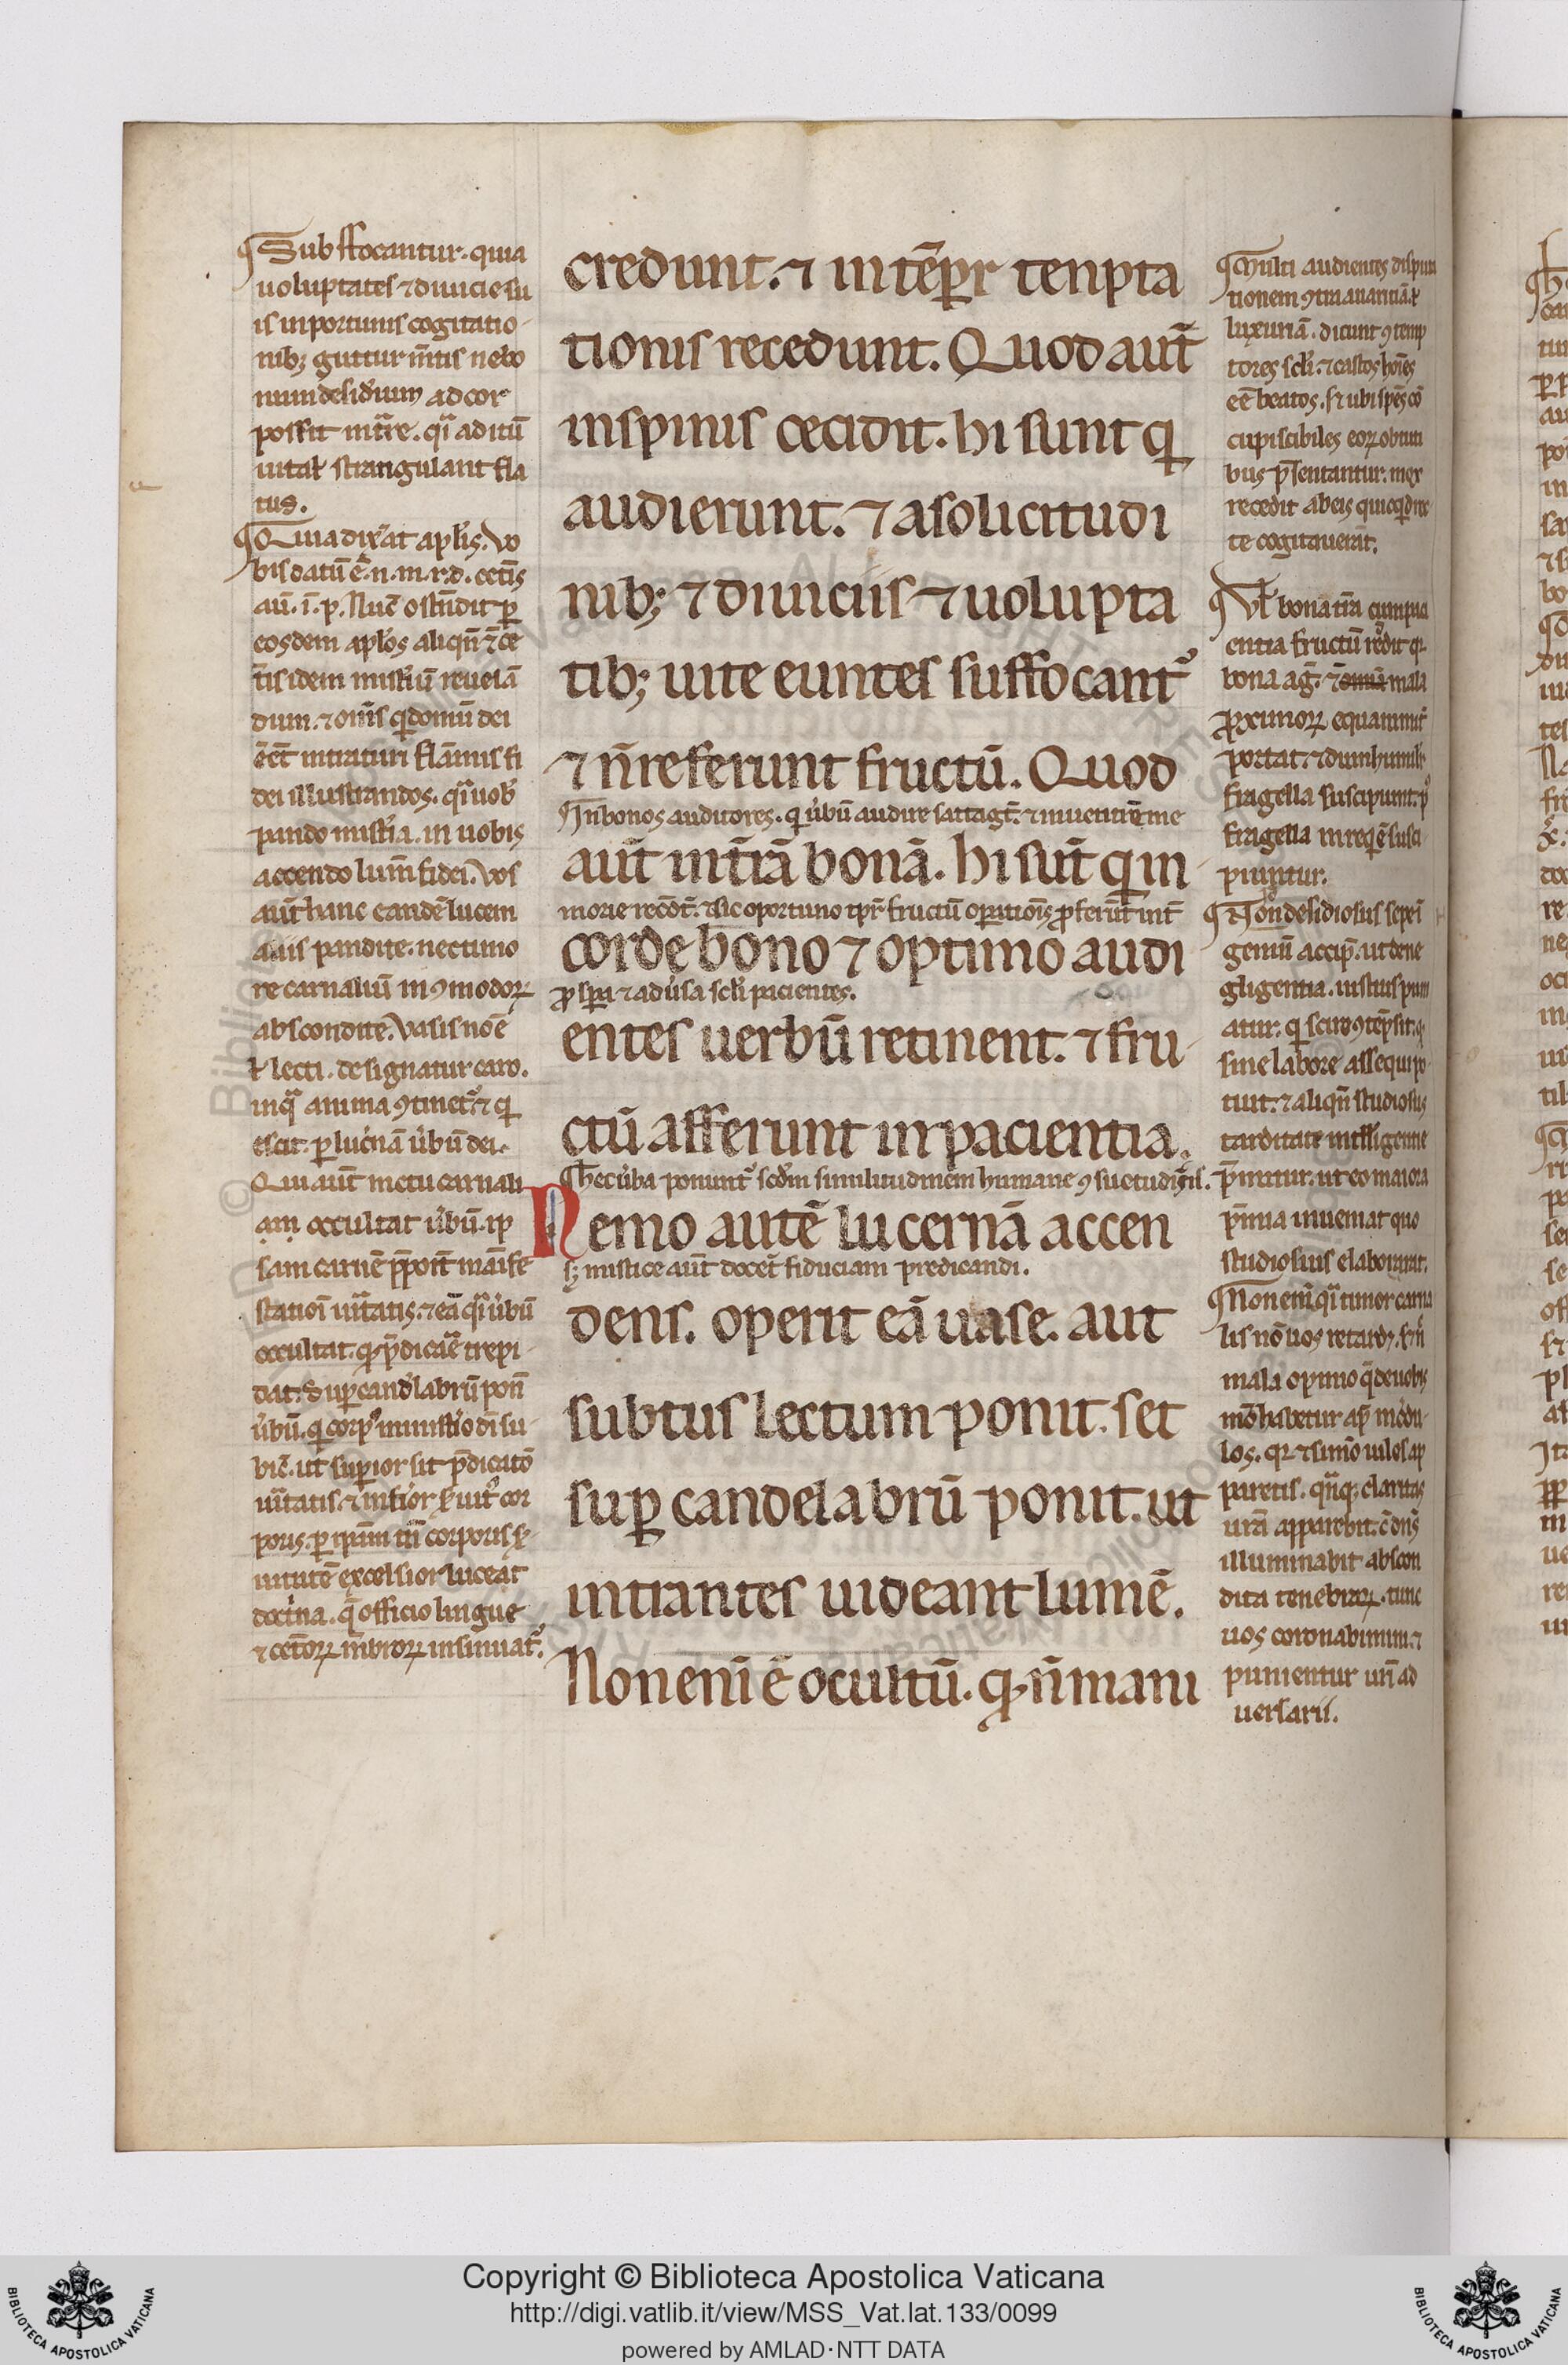 ¶Subffocantur. quia
uoluptates ⁊ diuicie su
is inportunis cogitatio-
nib; guttur m̄tis ne bo
num desid'ium ad cor
uital' strangulant fla
tus.
¶Quia dix'at apl'is. Vo
bis datū ē. n. m. r. d. cet'is
au. ī. p. Nūc ost̄ndit p̲
eosdem apl'os aliqn̄ ⁊ ce
t̄is idem mist'iū reuelā
dum. ⁊ om̄s q domū dei
dei illustrandos.
pando mist'ia. in uobis
accendo lum̄ fidei. Vos
aūt hanc eandē lucem
aliis pandite. nec timo
re carnaliū ꝯmodoꝝ
abscondite. Vasis noīe
ł lecti. designatur caro.
in qᵃ anima ꝯtinet᷑. ⁊ q
escit. p̲ luc'nā ūbū dei.
Qui aūt metu carnali
am occultat ūbū. ip
sam carnē p̄ponit manife
occultat. qͥ p̄dicare trepi-
dat. Sup̲ cand'labrū pon̄
poris. p̲ ipsum tn̄ corporis s'-
uitutē excelsior luceat
doct'na. q̄ officio lingue
⁊ cet'oꝝ m̄broꝝ insinuat᷑.
credunt. ⁊ in tēp̲r tenpta
tionis recedunt. Quod aut̄
in spinis cecidit. hi sunt q̲
audierunt. ⁊ a solicitudi
nib; ⁊ diuiciis ⁊ uolupta
tib; uite euntes suffocant᷑
⁊ n̄ referunt fructū. Quod
¶In bonos auditores. q ūbū audire satagt̄. ⁊ inuentū ī me
aut̄ in t̄rā bonā. hi sut̄ q in
morie recōt̄. ⁊ sic oportuno tp̲r fructū op̲ationis ꝓferūt int̄
corde bono ⁊ optimo audi
ꝓsp̲a ⁊ adūsa scl'i pacientes.
entes uerbū retinent. ⁊ fru
ctū afferunt in pacientia.
¶Hec ūba ponunt᷑ scd'm similitudinem humane ꝯsuetudinis.
Nemo autē lucernā accen
s; mistice aut̄ docet fiduciam predicandi.
dens. operit eā uase. aut
subtus lectum ponit. set
sup̲ candelabrū ponit. ut
intrantes uideant lumē.
Non enī ē ocultū. qͦ n̄ mani
¶Multi audientes disputa
tionem ꝯtra auaritiā. ł
luxuriā. dicunt ꝯtemp
tores scl'i. ⁊ castos hōīes
eē beatos. s; ubi sp̄es cō
cupiscibiles eoꝝ obtuti
bus p̄sentantur. mox
recedit ab eis quicqd re
te cogitauerāt.
¶Vł bona t̄ra cum paci
entia fructū reddit q̄
bona ag̅. ⁊ omīa mala
ꝓximoꝝ equanimit᷑
portat. ⁊ dum humilit'
fragella suscipiunt. p'
fragella in reqͥē susci-
piuntur.
¶Non desidiosus sepe ī
geniū accip̄. ut de ne
gligentia. iustius puni
sine labore assequi po
tuit. ⁊ aliqn̄ studiosus
tarditate intelligentie
p̄mitur. ut eo maiora
p̄mia inueniat quo
studiosius elaborarat.
¶Non enī qᵃ timor carna
lis nō uos retard;
mala opinio q̄ de uobis
mō habetur
los. qꝫ ⁊ si mō uiles ap
paretis. qn̄qꝫ claritas
ur̄a apparebit. cū dn̄s
illuminabit abscon
dita tenebraꝝ. tunc
uos coronabimini. ⁊
punientur ur̄i ad
uersarii.
Copyright © Biblioteca Apostolica Vaticana
http://digi.vatlib.it/view/MSS_Vat.lat.133/0099
powered by AMLAD·NTT DATA
BIBLIOTECA APOSTOLICA VATICANA
BIBLIOTECA APOSTOLICA VATICANA